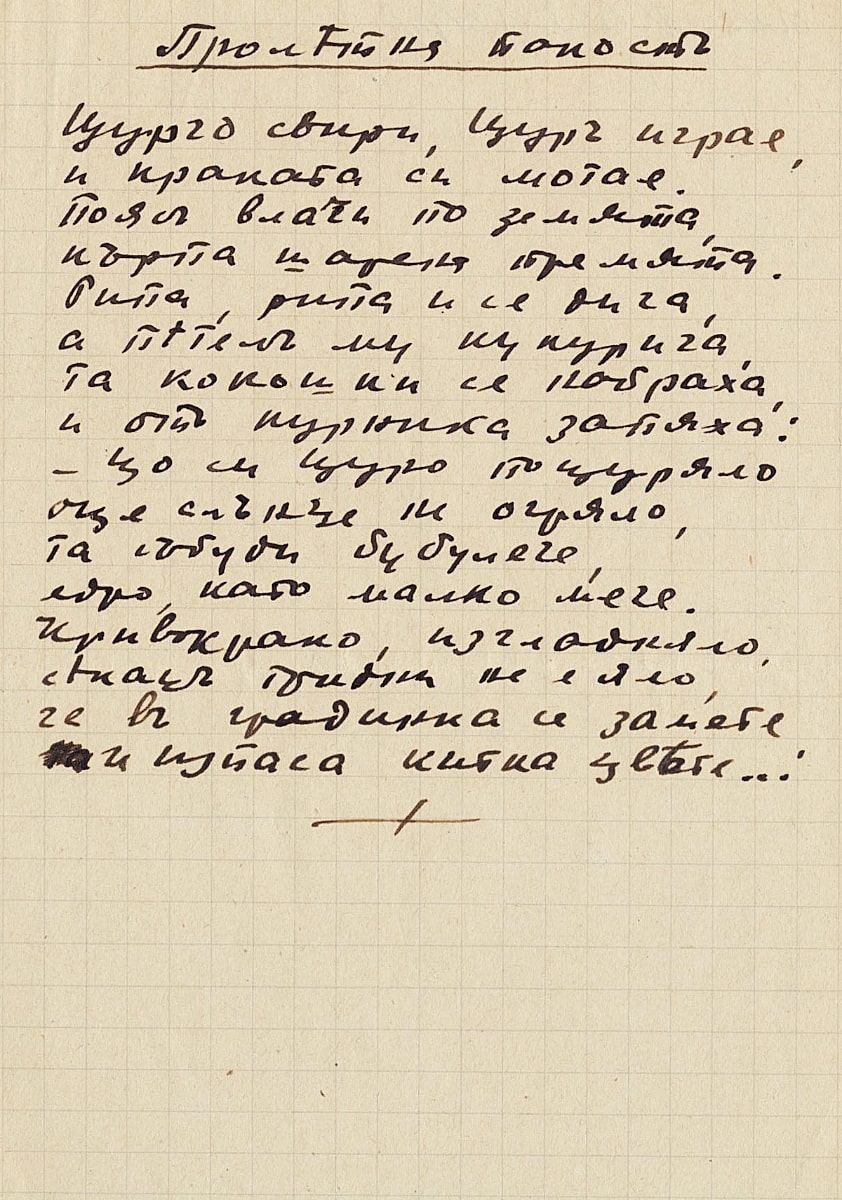 Пролѣтна пакость
Щурчо свири, Щуръ играе,
и краката си мотае.
Поясъ влачи по земята,
кърпа шарена премята.
Рипа, рипа и се дига,
а пѣтелъ му кукурига,
та кокошки се набраха,
и отъ курника запяха:
– Що си щуро пощуряло
още слънце не огряло,
та събуди бубулече,
едро, като малко мече.
Кривокрако, изгладняло,
сѣкашъ три дни не е яло,
че въ градинка се замете
и изпаса китка цвѣте...!